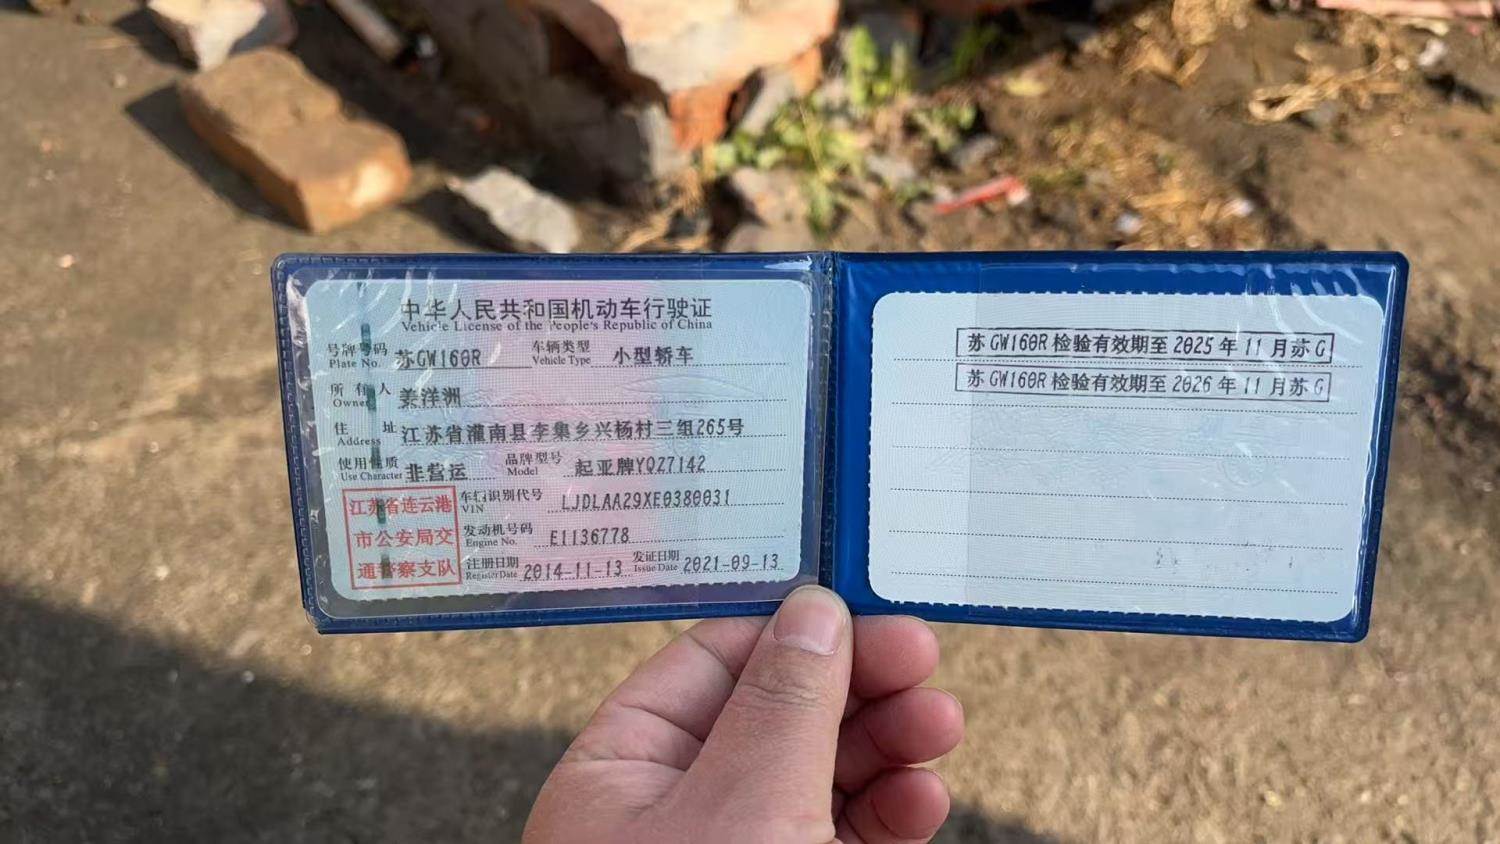 中华人民共和国机动车行驶证
Vehicle License of the People's Republic of China
号牌号码 苏GW160R 车辆类型 小型轿车
Plate No. Vehicle Type
所有人 姜洋洲
Owner
住址 江苏省灌南县李集乡兴杨村三组265号
Address
使用性质 非营运 品牌型号 起亚牌YQZ7142
Use Character Model
江苏省连云港
市公安局交
通警察支队
车辆识别代号 LJDLAA29XE0380031
VIN
发动机号码 E1136778
Engine No.
注册日期 2014-11-13 发证日期 2021-09-13
Register Date Issue Date
苏GW160R检验有效期至2025年11月苏G
苏GW160R检验有效期至2026年11月苏G